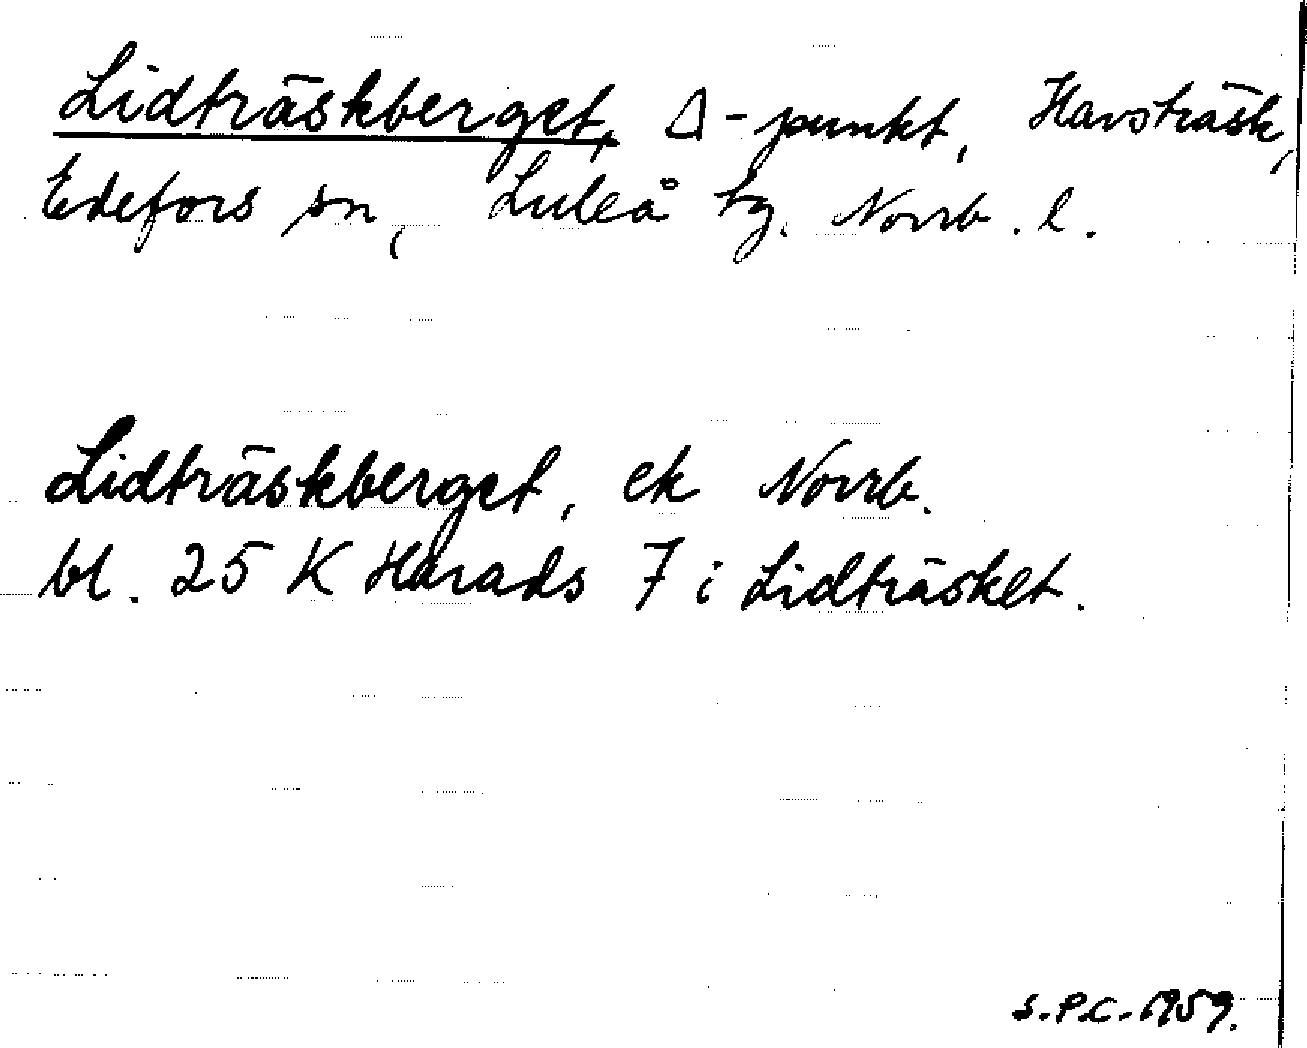 Lidträskberget, Δ-punkt, Havsträsk,
Edefors sn, Luleå tg. Norrb. l.
Lidträskberget, ek Norrb.
bl. 25 K Harads 7 i Lidträsket.
S.P.C. 1959.